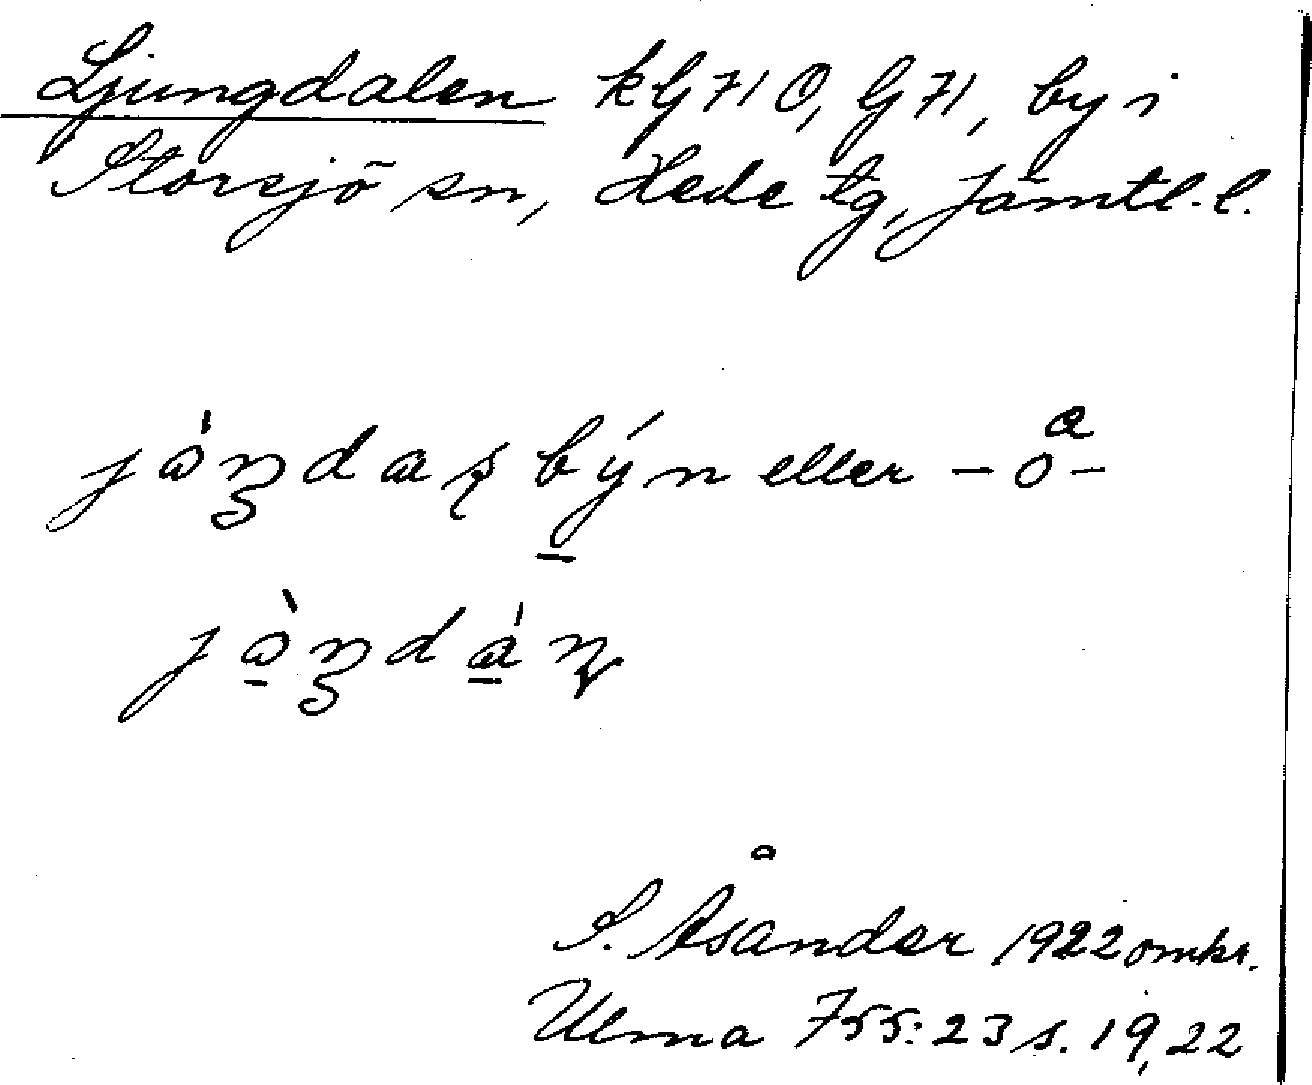 Ljungdalen kG71 O, G71, by i
Storsjö sn, Hede tg, Jämtl. l.
eller
S. Åsander 1922 omkr.
Ulma 755:23 s. 19, 22